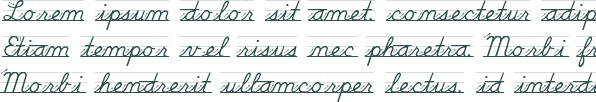 Lorem ipsum dolor sit amet, consectetur adip
Etiam tempor vel risus nec pharetra. Morbi fr
Morbi hendrerit ullamcorper lectus, id interdu